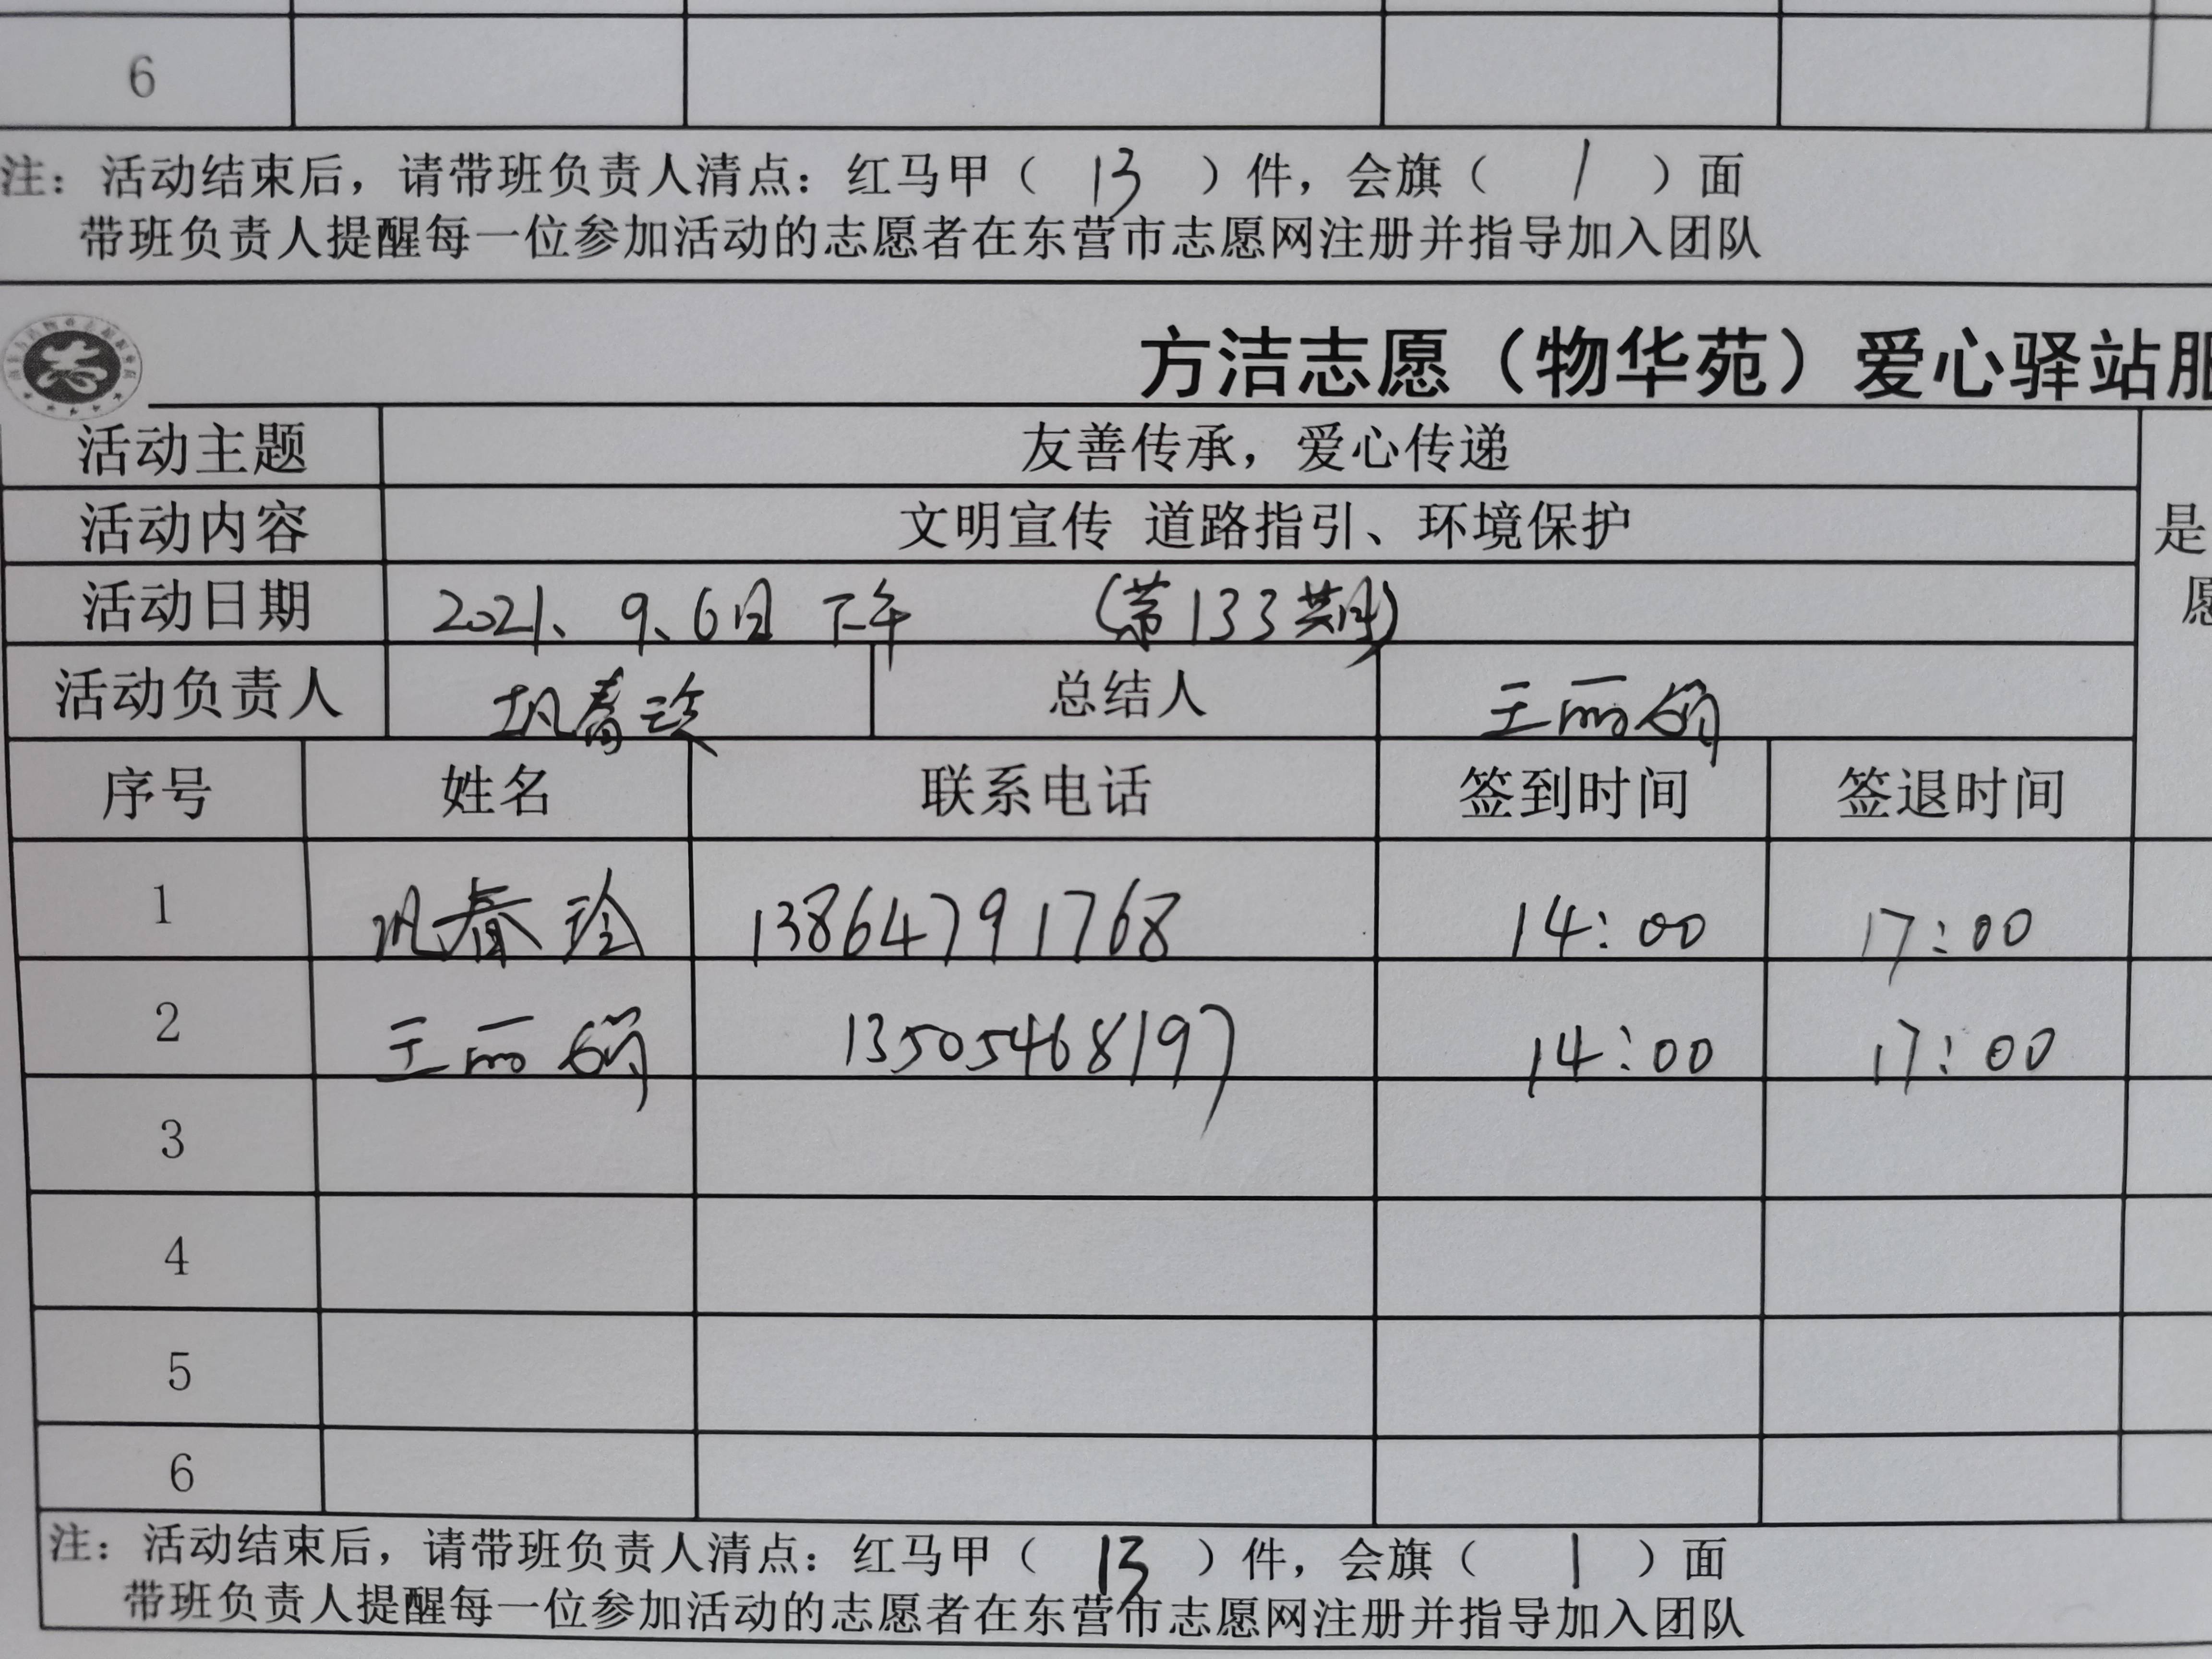 6
注：活动结束后，请带班负责人清点：红马甲（ 13 ）件，会旗（ 1 ）面
带班负责人提醒每一位参加活动的志愿者在东营市志愿网注册并指导加入团队
方洁志愿（物华苑）爱心驿站服
活动主题 友善传承，爱心传递
活动内容 文明宣传 道路指引、环境保护 是
活动日期 2021、9、6日 下午 (第133期) 愿
活动负责人 巩春玲 总结人 王丽娟
序号 姓名 联系电话 签到时间 签退时间
1 巩春玲 13864791768 14:00 17:00
2 王丽娟 13505468197 14:00 17:00
3
4
5
6
注：活动结束后，请带班负责人清点：红马甲（ 13 ）件，会旗（ 1 ）面
带班负责人提醒每一位参加活动的志愿者在东营市志愿网注册并指导加入团队